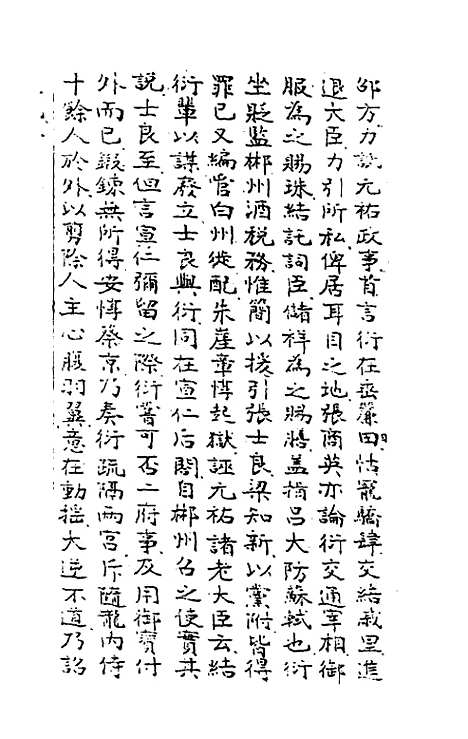 邵方力詆元祐政事首言衍在垂簾日怙寵驕肆交結戚里進
退大臣力引所私俾居耳目之地張商英亦論衍交通宰相御
服為之賜珠結託詞臣儲祥為之賜膳蓋指呂大防蘇軾也衍
坐貶監郴州酒稅務惟簡以援引張士良梁知新以黨附皆得
罪已又編管白州徙配朱崖章惇起獄誣元祐諸老大臣云結
衍輩以謀廢立士良與衍同在宣仁后閣自郴州召之使實其
說士良至但言宣仁彌留之際衍嘗可否二府事及用御寶付
外而已鍛鍊無所得安惇蔡京乃奏衍疏隔兩宮斥隨龍內侍
十餘人於外以剪除人主心腹羽翼意在動搖大逆不道乃詔